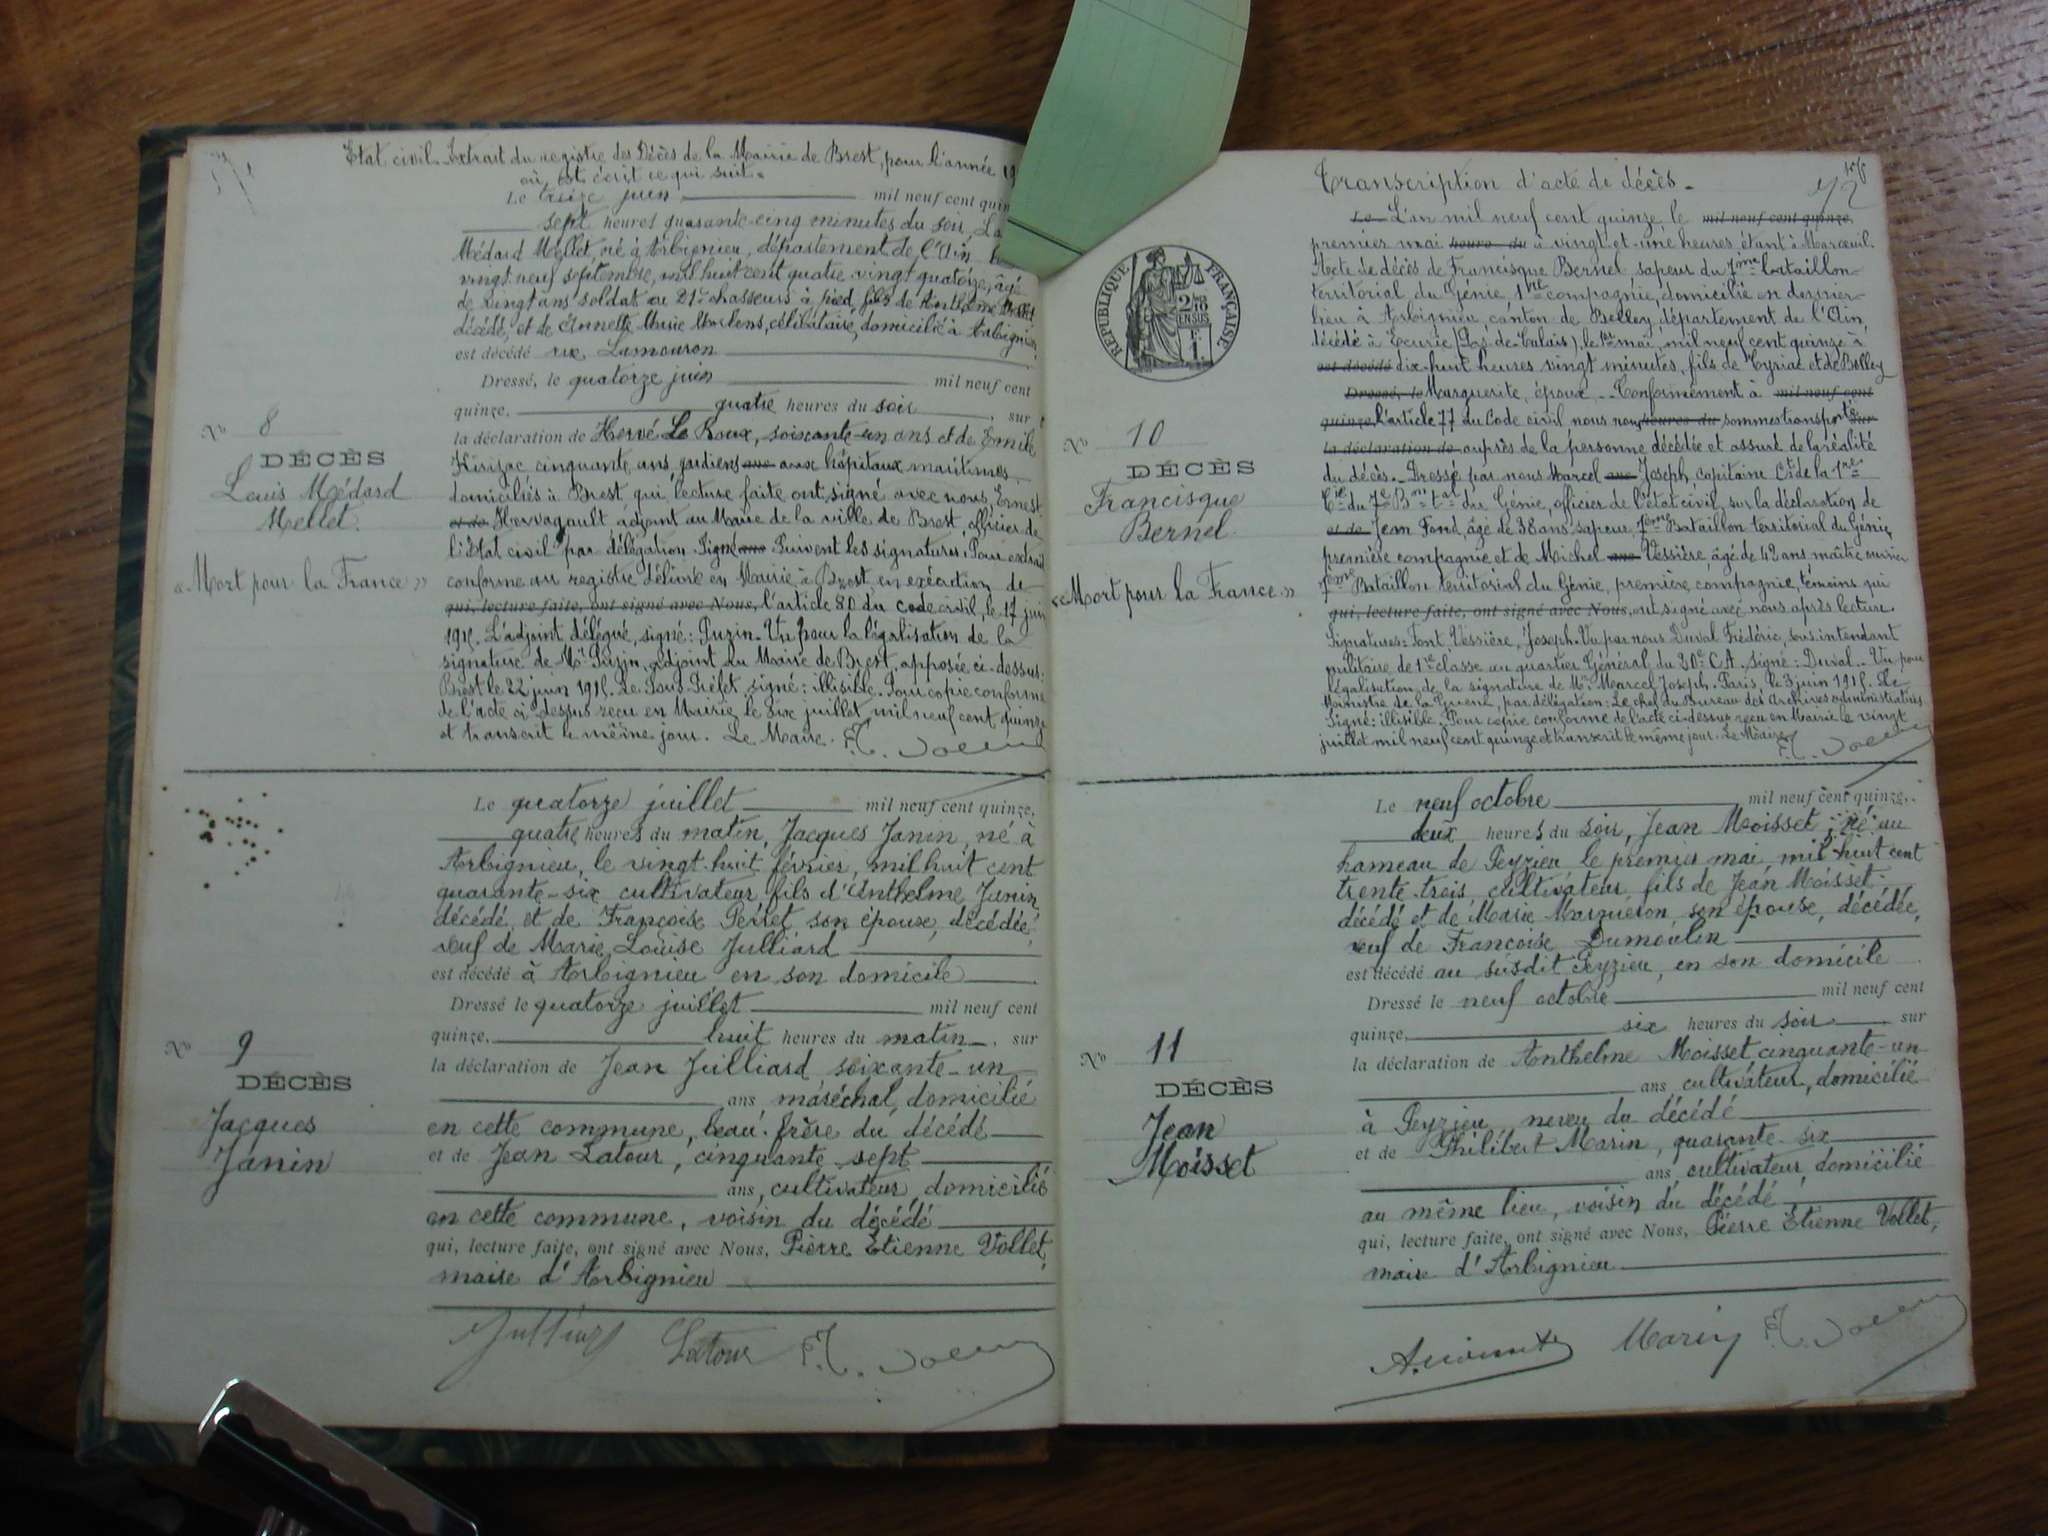 Etat civil. Extrait du registre des Décès de la Mairie de Brest, pour l'année
où est écrit ce qui suit.
Le treize juin mil neuf cent
sept heures quarante-cinq minutes du soir,
Médard Mellet, né à Arbignieu, département de l'Ain,
vingt-neuf septembre, mil huit cent quatre vingt quatorze, âgé
de vingt ans soldat au 21e chasseurs à pied, fils de Anthelme Mellet
décédé, et de Annette Marie, célibataire, domicilié à Arbignieu,
est décédé rue Lamouron
Dressé, le quatorze juin mil neuf cent
quinze, quatre heures du soir, sur
la déclaration de Hervé Le Roux, soixante-un ans et de Emile
cinquante ans, gardiens ans aux hôpitaux maritimes
domiciliés à Brest qui, lecture faite ont signé avec nous, Ernest
et de Hervagault, adjoint au Maire de la ville de Brest, officier de
l'Etat civil par délégation. Signé ans Suivent les signatures. Pour extrait
conforme au registre délivré en Mairie à Brest, en exécution de
qui, lecture faite, ont signé avec Nous, l'article 80 du code civil, le 17 juin
1915. L'adjoint délégué, signé: Puzin. Vu pour la légalisation de la
signature de Mr Puzin, adjoint du Maire de Brest, apposée ci-dessus.
Brest le 22 juin 1915. Le Sous-Préfet, signé: illisible. Pour copie conforme
de l'acte ci-dessus reçu en Mairie le six juillet, mil neuf cent quinze
et transcrit le même jour. Le Maire.
No 8
DÉCÈS
Louis Médard
Mellet
« Mort pour la France »
Le quatorze juillet mil neuf cent quinze,
quatre heures du matin, Jacques Janin, né à
Arbignieu, le vingt-huit février, mil huit cent
quarante-six cultivateur, fils d'Anthelme Janin,
décédé, et de Françoise Perret son épouse, décédée,
veuf de Marie Louise Julliard
est décédé à Arbignieu, en son domicile
Dressé le quatorze juillet mil neuf cent
quinze, huit heures du matin, sur
la déclaration de Jean Julliard soixante-un
ans maréchal, domicilié
en cette commune, beau-frère du décédé
et de Jean Latour, cinquante sept
ans, cultivateur, domicilié
en cette commune, voisin du décédé
qui, lecture faite, ont signé avec Nous, Pierre Etienne Vollet,
maire d'Arbignieu
No 9
DÉCÈS
Jacques
Janin
Julliard Latour
Transcription d'acte de décès.
Le L'an mil neuf cent quinze le mil neuf cent quinze,
premier mai heures du à vingt-et-une heures étant à Marœuil.
Acte de décès de Francisque Bernel, sapeur du 7me bataillon
territorial du Génie, 1re compagnie, domicilié en dernier
lieu à Arbignieu canton de Belley, département de l'Ain,
décédé à Ecurie (Pas-de-Calais), le 1er mai, mil neuf cent quinze à
est décédé dix-huit heures vingt minutes, fils de Cyriac et de Bolley
Dressé, le Marguerite, époux. Conformément à mil neuf cent
quinze l'article 77 du Code civil nous nous heures du sommes transporté sur
la déclaration de auprès de la personne décédée et assuré de la réalité
du décès. Dressé par nous Marcel ans Joseph, capitaine Ct de la 1re
Cie du 7e Bon tal du Génie, officier de l'état civil, sur la déclaration de
et de Jean Fond, âgé de 38 ans, sapeur, 7eme Bataillon territorial du Génie,
première compagnie, et de Michel ans Vessière, âgé de 42 ans maître ouvrier
7eme Bataillon territorial du Génie, première compagnie, témoins, qui
qui, lecture faite, ont signé avec Nous, ont signé avec nous après lecture.
Signatures: Font, Vessière, Joseph. Vu par nous Duval Frédéric, sous-intendant
militaire de 1re classe au quartier Général du 20e C.A. signé: Duval. Vu pour
légalisation de la signature de Mr Marcel Joseph. Paris, le 3 juin 1915. Le
Ministre de la Guerre, par délégation: Le chef du Bureau des Archives administratives
Signé: illisible. Pour copie conforme de l'acte ci-dessus reçu en Mairie le vingt
juillet mil neuf cent quinze et transcrit le même jour. Le Maire
RÉPUBLIQUE FRANÇAISE
2/10 EN SUS
F. 1.
No 10
DÉCÈS
Francisque
Bernel
« Mort pour la France »
Le neuf octobre mil neuf cent quinze,
deux heures du soir, Jean Moisset, né au
hameau de Peyzieu le premier mai mil-huit cent
trente-trois, cultivateur, fils de Jean Moisset
décédé et de Marie Marguéron, son épouse, décédée,
veuf de Françoise Dumoulin
est décédé au susdit Peyzieu, en son domicile
Dressé le neuf octobre mil neuf cent
quinze, six heures du soir sur
la déclaration de Anthelme Moisset cinquante-un
ans cultivateur, domicilié
à Peyzieu, neveu du décédé
et de Philibert Marin, quarante-six
ans, cultivateur, domicilié
au même lieu, voisin du décédé
qui, lecture faite, ont signé avec Nous, Pierre Etienne Vollet,
maire d'Arbignieu
No 11
DÉCÈS
Jean
Moisset
A. Moisset Marin